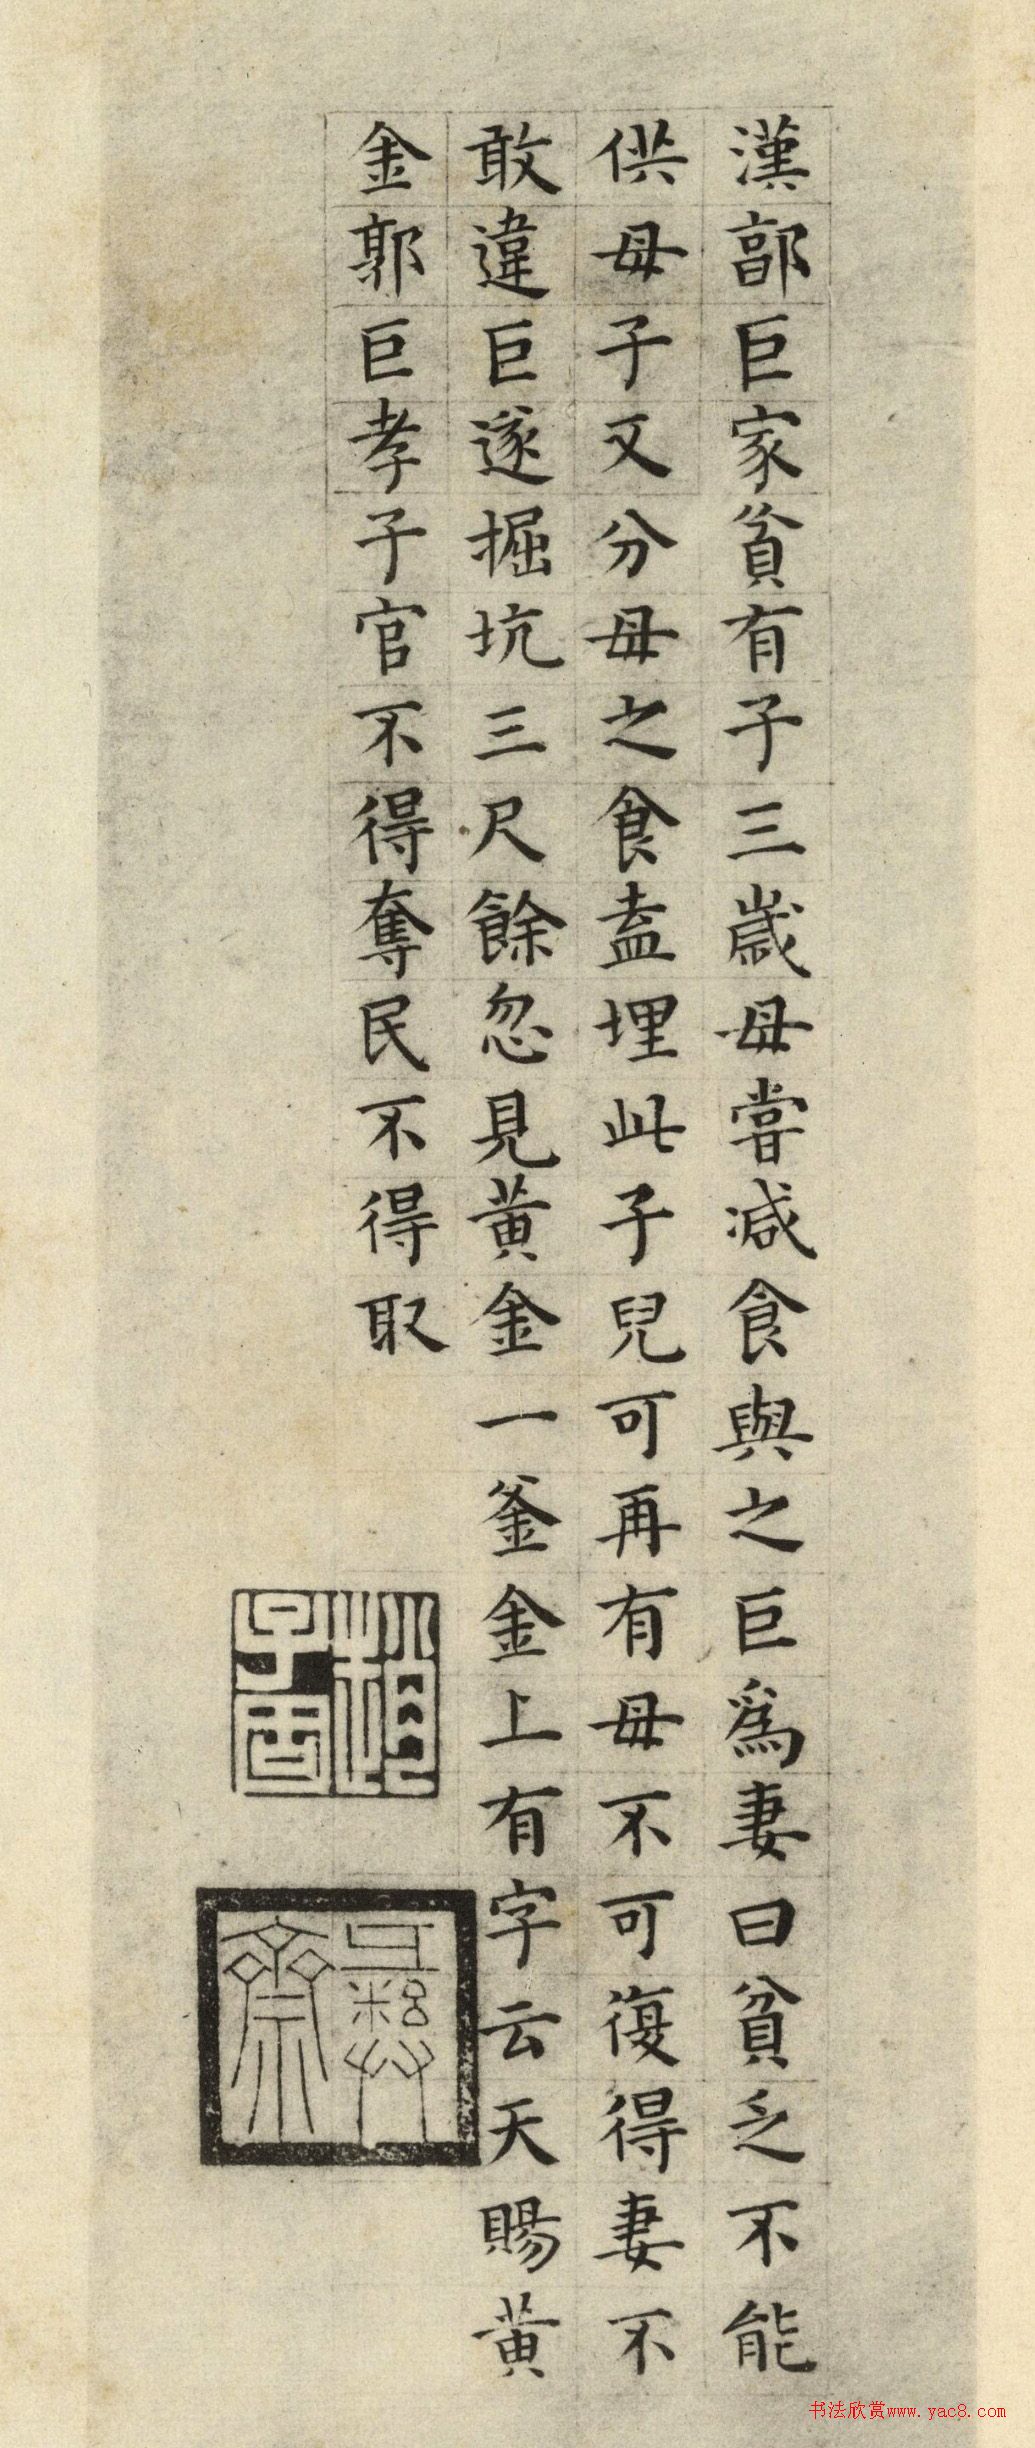 漢郭巨家貧有子三歲母嘗減食與之巨爲妻曰貧乏不能
供母子又分母之食盍埋此子兒可再有母不可復得妻不
敢違巨遂掘坑三尺餘忽見黃金一釜金上有字云天賜黃
金郭巨孝子官不得奪民不得取
书法欣赏www.yac8.com